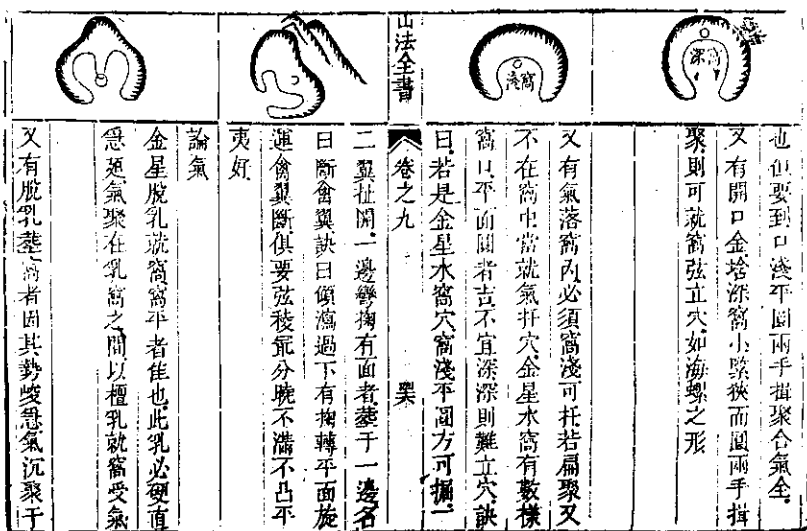 深窩
也但要到口淺平圓兩手揖聚合氣全
又有開口金㙮深窩小緊狹而圓兩手揖
聚則可就窩弦立穴如海螺之形
淺窩
又有氣落窩內必須窩淺可扦若扁聚又
不在窩中當就氣扦穴金星水窩有數樣
窩口平面圓者吉不宜深深則難立穴訣
曰若是金星水窩穴窩淺平圓方可掘一
山法全書
卷之九
二翼扯開一邊彎掬有面者葬于一邊名
曰斷禽翼訣曰傾瀉過下有掬轉平面旋
運禽翼斷俱要弦稜能分曉不滿不凸平
夷好
論氣
金星脫乳就窩窩平者佳也此乳必硬直
急題氣聚在乳窩之間以檀乳就窩受氣
又有脫乳葬窩者因其勢峻急氣沉聚于